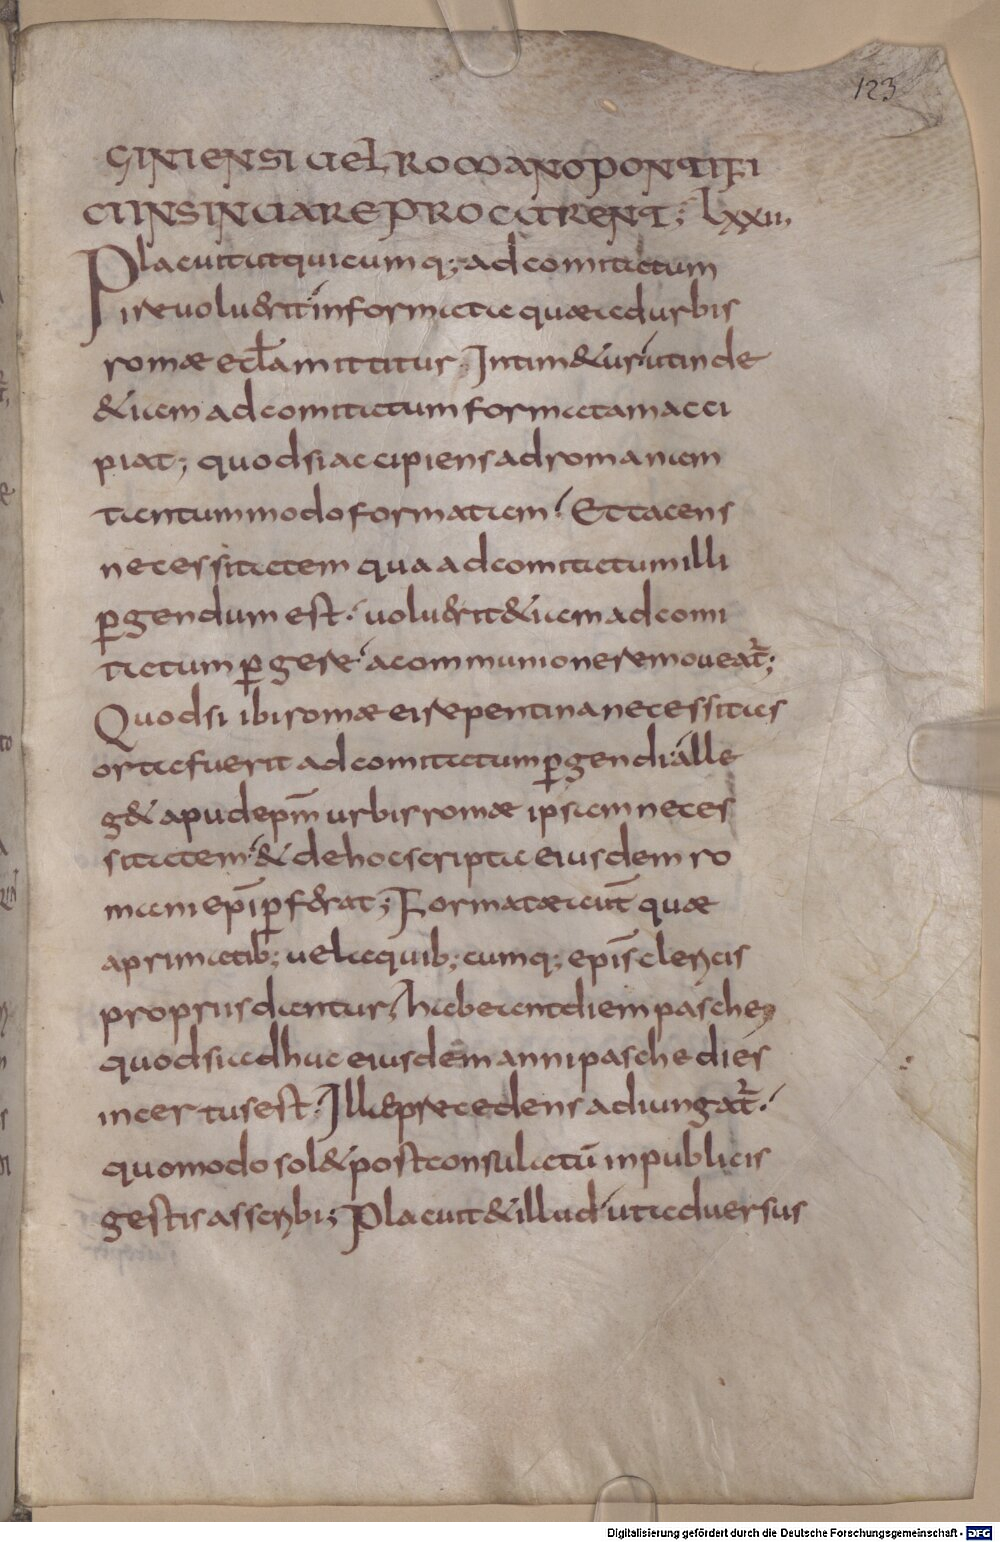 123
GINIENSI UEL ROMANO PONTIFI
CI INSINUARE PROCURENT; LXXII.
Placuit ut quicumq; ad comitatum
ire uoluerit in formata quae ad urbis
romae eccl̄a mittitur. Intim&ur ut inde
&iam ad comitatum formatam acci
piat; quod si accipiens ad romanam
tantummodo formatam. Et tacens
necessitatem qua ad comitatum illi
ꝑgendum est. uoluerit &iam ad comi
tatum ꝑgere a communione remoueat᷑;
Quod si ibi romae ei repentina necessitas
orta fuerit ad comitatum ꝑgendi alle
g& apud ep̄m urbis romae ipsam neces
sitatem. & de hoc scripta eiusdem ro
mani ep̄i ꝑferat; Formatae aut̄ quae
a primatib; uel a quib;cumq; ep̄is clericis
propriis dantur, habeant diem paschę
quod si adhuc eiusdem anni pasche dies
incertus est. Ille precedens adiungat᷑.
quomodo sol& post consulatū in publicis
gestis asscribi; Placuit & illud ut aduersus
Digitalisierung gefördert durch die Deutsche Forschungsgemeinschaft - DFG